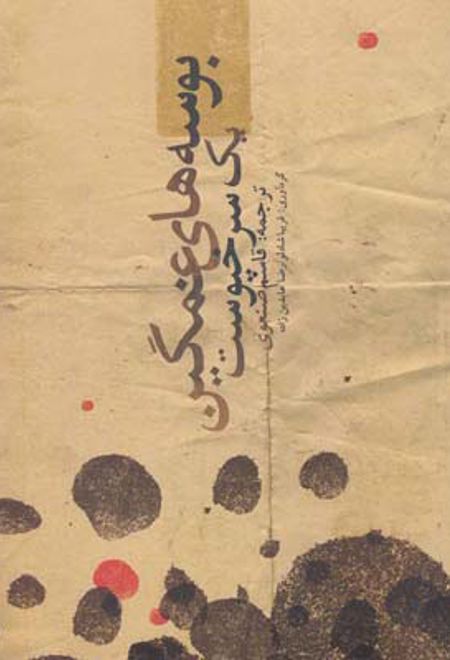 بوسه‌های غمگین
یک سرخپوست
ترجمه: قاسم صنعوی
گردآوری: فریبا شادلو، رضا عابدین زاده